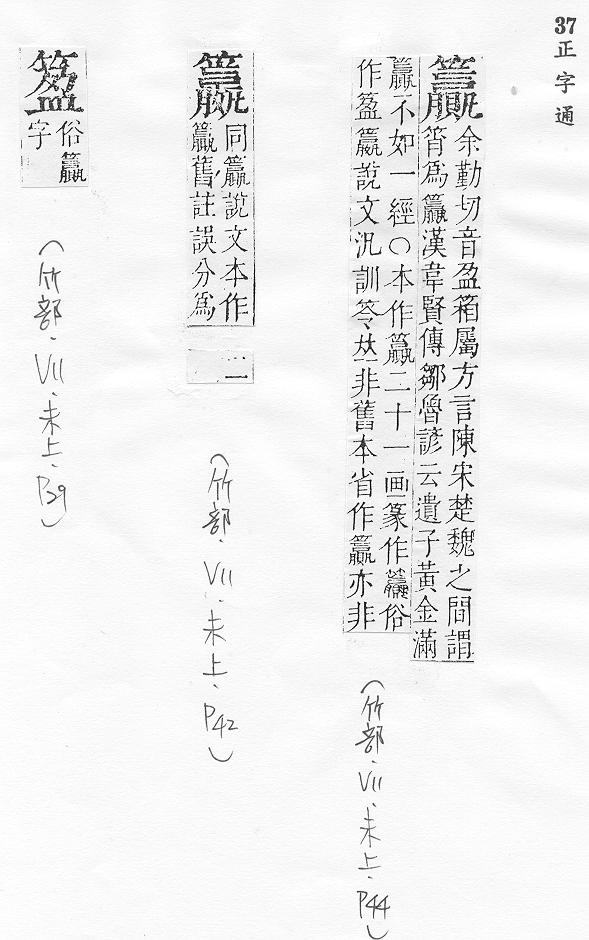 37
正字通
籯
余勤切音盈箱屬方言陳宋楚魏之間謂
筲爲籯漢韋賢傳鄒魯諺云遺子黃金滿
籯不如一經○本作籯二十一画篆作俗
作籯說文汎訓笭𠀤非舊本省作籝亦非
（竹部、VII、未上、P44）
籝
同籯說文本作
籯舊註誤分爲
二
（竹部、VII、未上、P42）
俗籯
字
（竹部、VII、未上、P39）